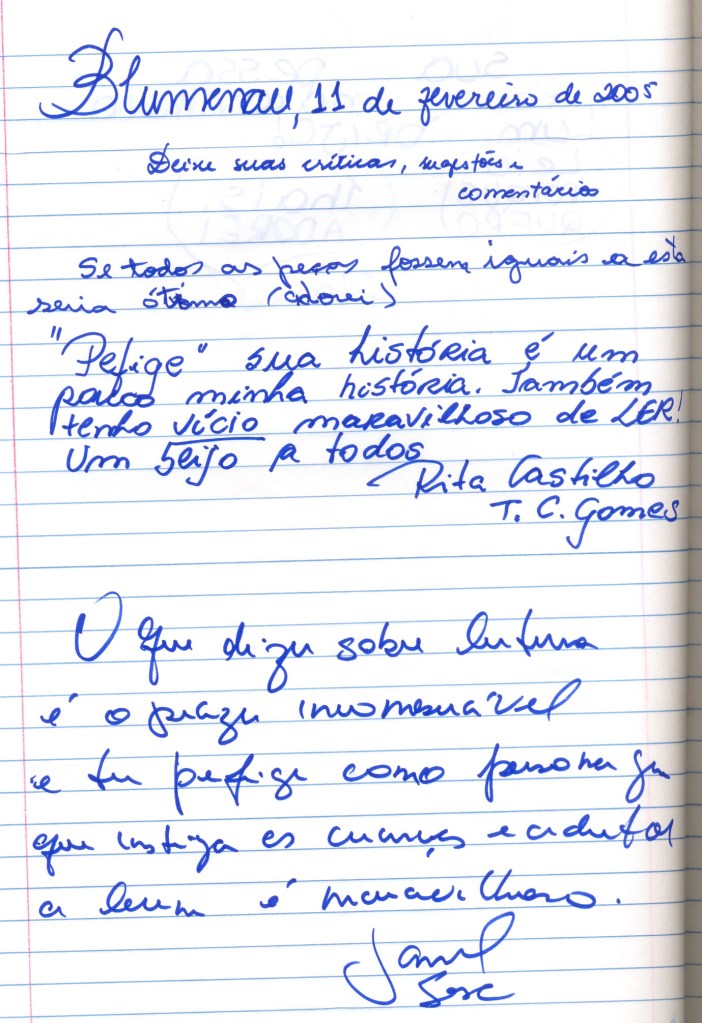 Blumenau, 11 de fevereiro de 2005
Deixe suas críticas, sugestões e
comentários
Se todos as peças fossem iguais a esta
seria ótimo (adorei)
"Pefige" sua história é um
palco minha história. Também
tenho vício maravilhoso de LER!
Um beijo a todos
Rita Castilho
T. C. Gomes
O que dizer sobre leitura
é o prazer incomensurável
e tu pefige como personagem
que instiga as crianças e adultos
a lerem é maravilhoso.
Sesc